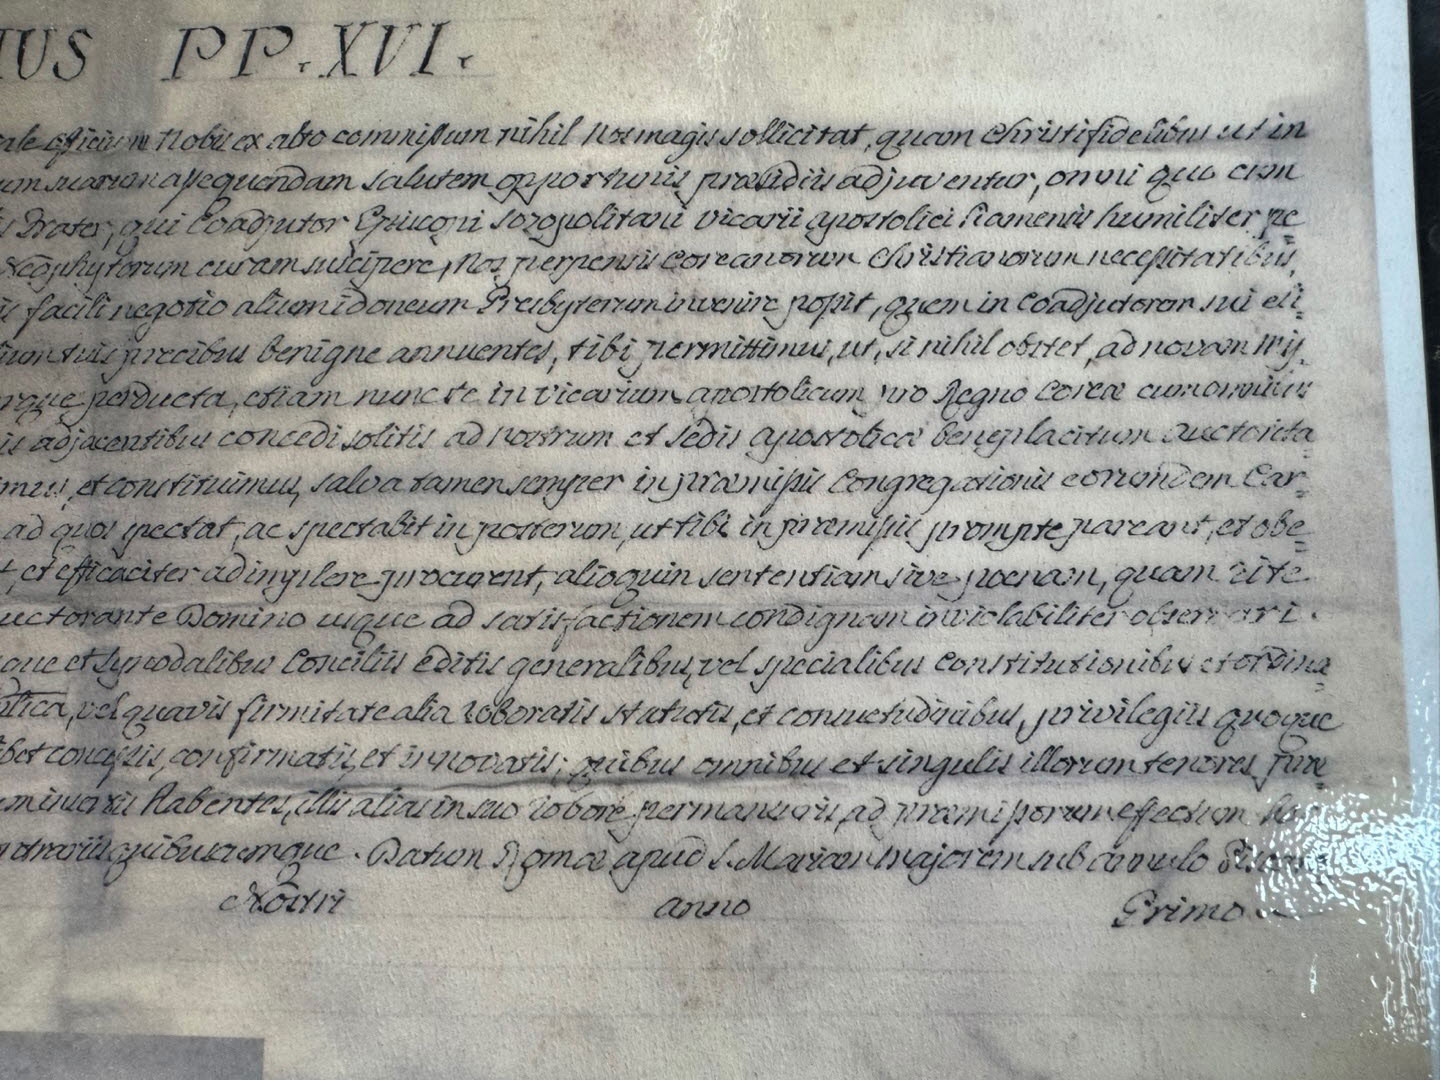 IUS PP. XVI.
ale officium Nobis ex alto commissum nihil Nos magis sollicitat, quam Christifidelibus ut in
suarum assequendam salutem opportunis præsidiis adjuventur, omni quo cum
Frater, qui Coadjutor Episcopi Sozopolitani Vicarii Apostolici Siamensis humiliter pe=
Neophytorum curam suscipere, Nos perpensis Coreanorum Christianorum necessitatibus,
is facili negotio alium idoneum Presbyterum invenire possit, quem in Coadjutorem sui eli=
tuis precibus benigne annuentes, tibi permittimus, ut, si nihil obstet, ad novam Mis=
perducta, etiam nunc te in Vicarium Apostolicum pro Regno Coreæ cum omnibus
is adjacentibus concedi solitis ad Nostrum et Sedis Apostolicæ beneplacitum Auctorita=
mus, et constituimus, salva tamen semper in præmissis Congregationis eorumdem Car=
ad quos spectat, ac spectabit in posterum, ut tibi in præmissis prompte pareant, et obe=
t, et efficaciter adimplere procurent, alioquin sententiam sive poenam, quam rite
uctorante Domino usque ad satisfactionem condignam inviolabiliter observari.
que et Synodalibus Conciliis editis generalibus, vel specialibus Constitutionibus et ordina=
olica, vel quavis firmitate alia roboratis statutis, et consuetudinibus, privilegiis quoque
libet concessis, confirmatis, et innovatis; quibus omnibus et singulis illorum tenores
habentes, illis alias in suo robore permansuris, ad præmissorum effectum
ntrariis quibuscumque. Datum Romæ apud S. Mariam Majorem sub annulo
Nostri anno Primo